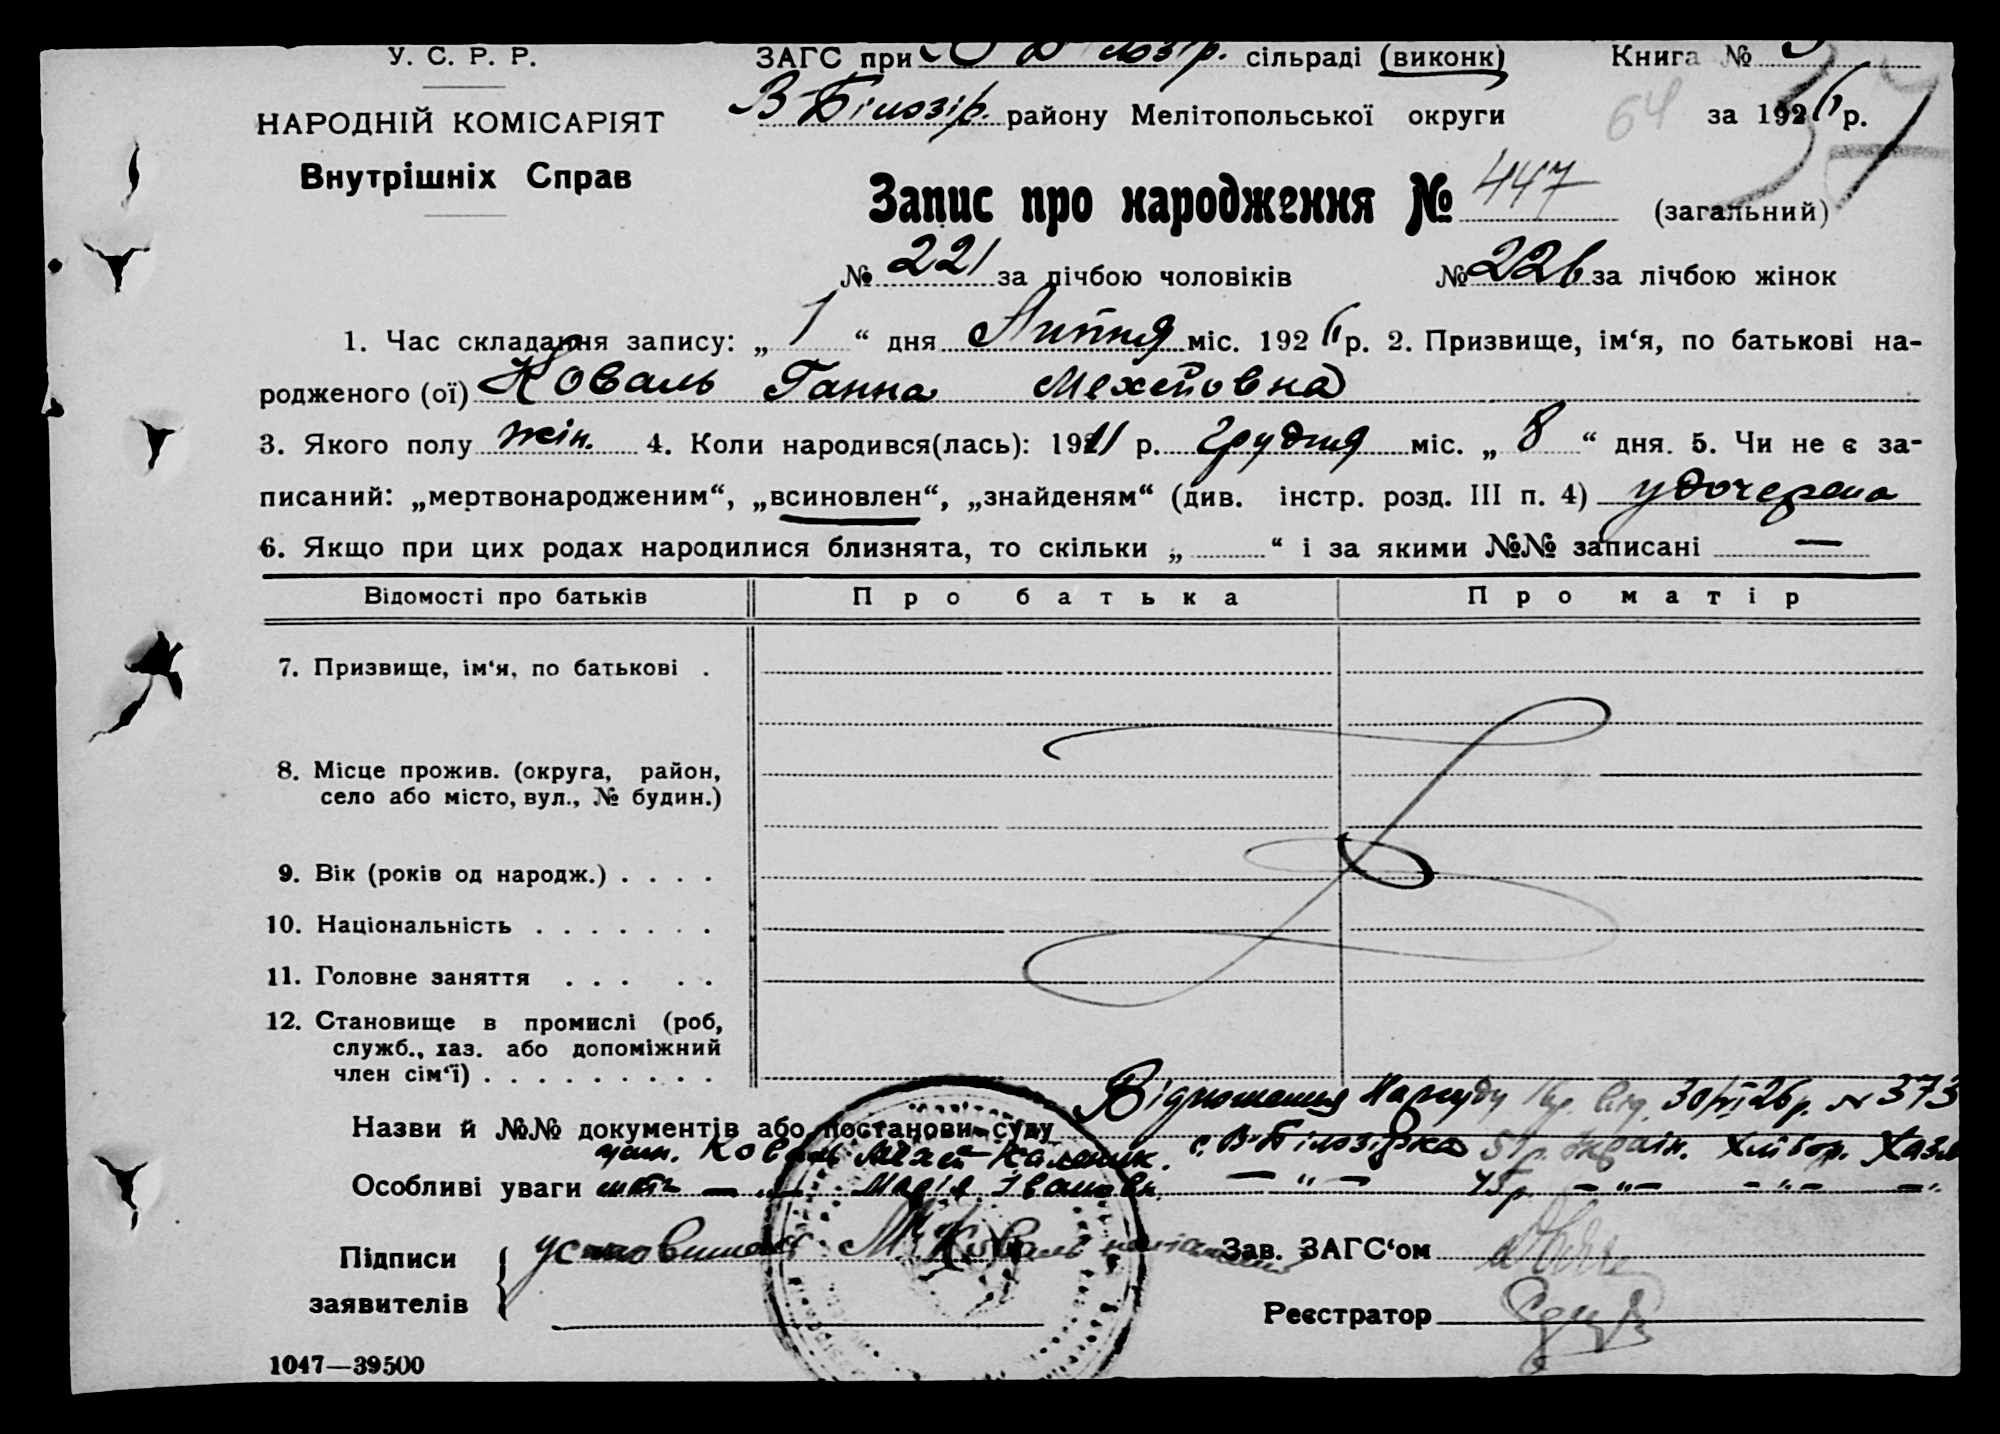 У. С. Р. Р.
ЗАГС при сільраді (виконк) Книга №
НАРОДНІЙ КОМІСАРІЯТ
В-Білозір. району Мелітопольської округи 64 за 1926 р. 57
Внутрішніх Справ
Запис про народження № 447 (загальний)
№ 221 за лічбою чоловіків № 226 за лічбою жінок
1. Час складання запису: „ 1 “ дня Липня міс. 1926 р. 2. Призвище, ім‘я, по батькові на-
родженого (ої) Коваль Ганна Мехетовна
3. Якого полу жін. 4. Коли народився(лась): 1911 р. Грудня міс. „ 8 “ дня. 5. Чи не є за-
писаний: „мертвонародженим“, „всиновлен“, „знайденям“ (див. інстр. розд. III п. 4) удочерена
6. Якщо при цих родах народилися близнята, то скільки „ “ і за якими №№ записані —
Відомості про батьків Про батька Про матір
7. Призвище, ім‘я, по батькові .
8. Місце прожив. (округа, район,
село або місто, вул., № будин.)
9. Вік (років од народж.) . . . .
10. Національність . . . . . . .
11. Головне заняття . . . . .
12. Становище в промислі (роб,
служб., хаз. або допоміжний
член сім‘ї) . . . . . . . . .
Відношення Нарсуду 30/VI 26 р. № 373
Назви й №№ документів або постанови суду
Коваль Мехет Каленик. с. В-Білозірка 51 р. україн. Хлібор. Хазя
Особливі уваги мать — „ — Марія Івановн. — „ — 45 р. — „ — — „ — — „
Підписи
заявителів
усиновитель М. К. Коваль
Зав. ЗАГС‘ом
Реєстратор
1047—39500